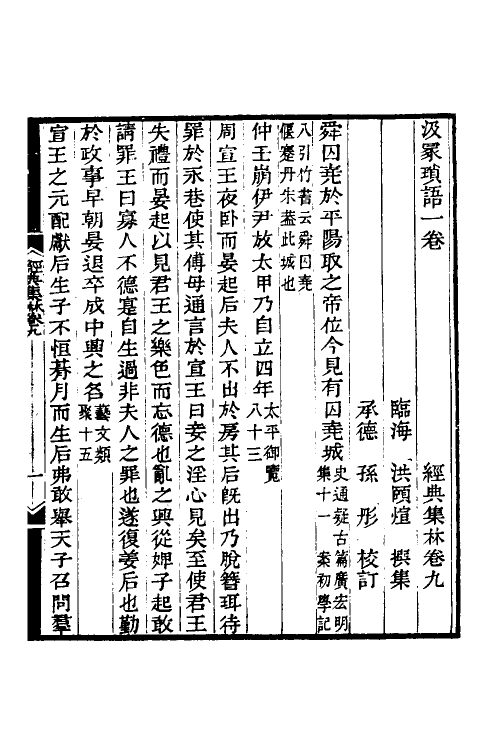 汲冢瑣語一卷　經典集林卷九
臨海　洪頤煊　撰集
承德　孫彤　校訂
舜囚堯於平陽取之帝位今見有囚堯城史通疑古篇廣宏明集十一　案初學記
八引竹書云舜囚堯偃塞丹朱葢此城也
仲壬崩伊尹放太甲乃自立四年太平御覽八十三
周宣王夜卧而晏起后夫人不出於房其后旣出乃脫簪珥待
罪於永巷使其傅母通言於宣王曰妾之淫心見矣至使君王
失禮而晏起以見君王之樂色而忘德也亂之興從婢子起敢
請罪王曰寡人不德寔自生過非夫人之罪也遂復姜后也勤
於政事早朝晏退卒成中興之名藝文類聚十五
宣王之元配獻后生子不恒朞月而生后弗敢舉天子召問羣
經典集林卷九
一